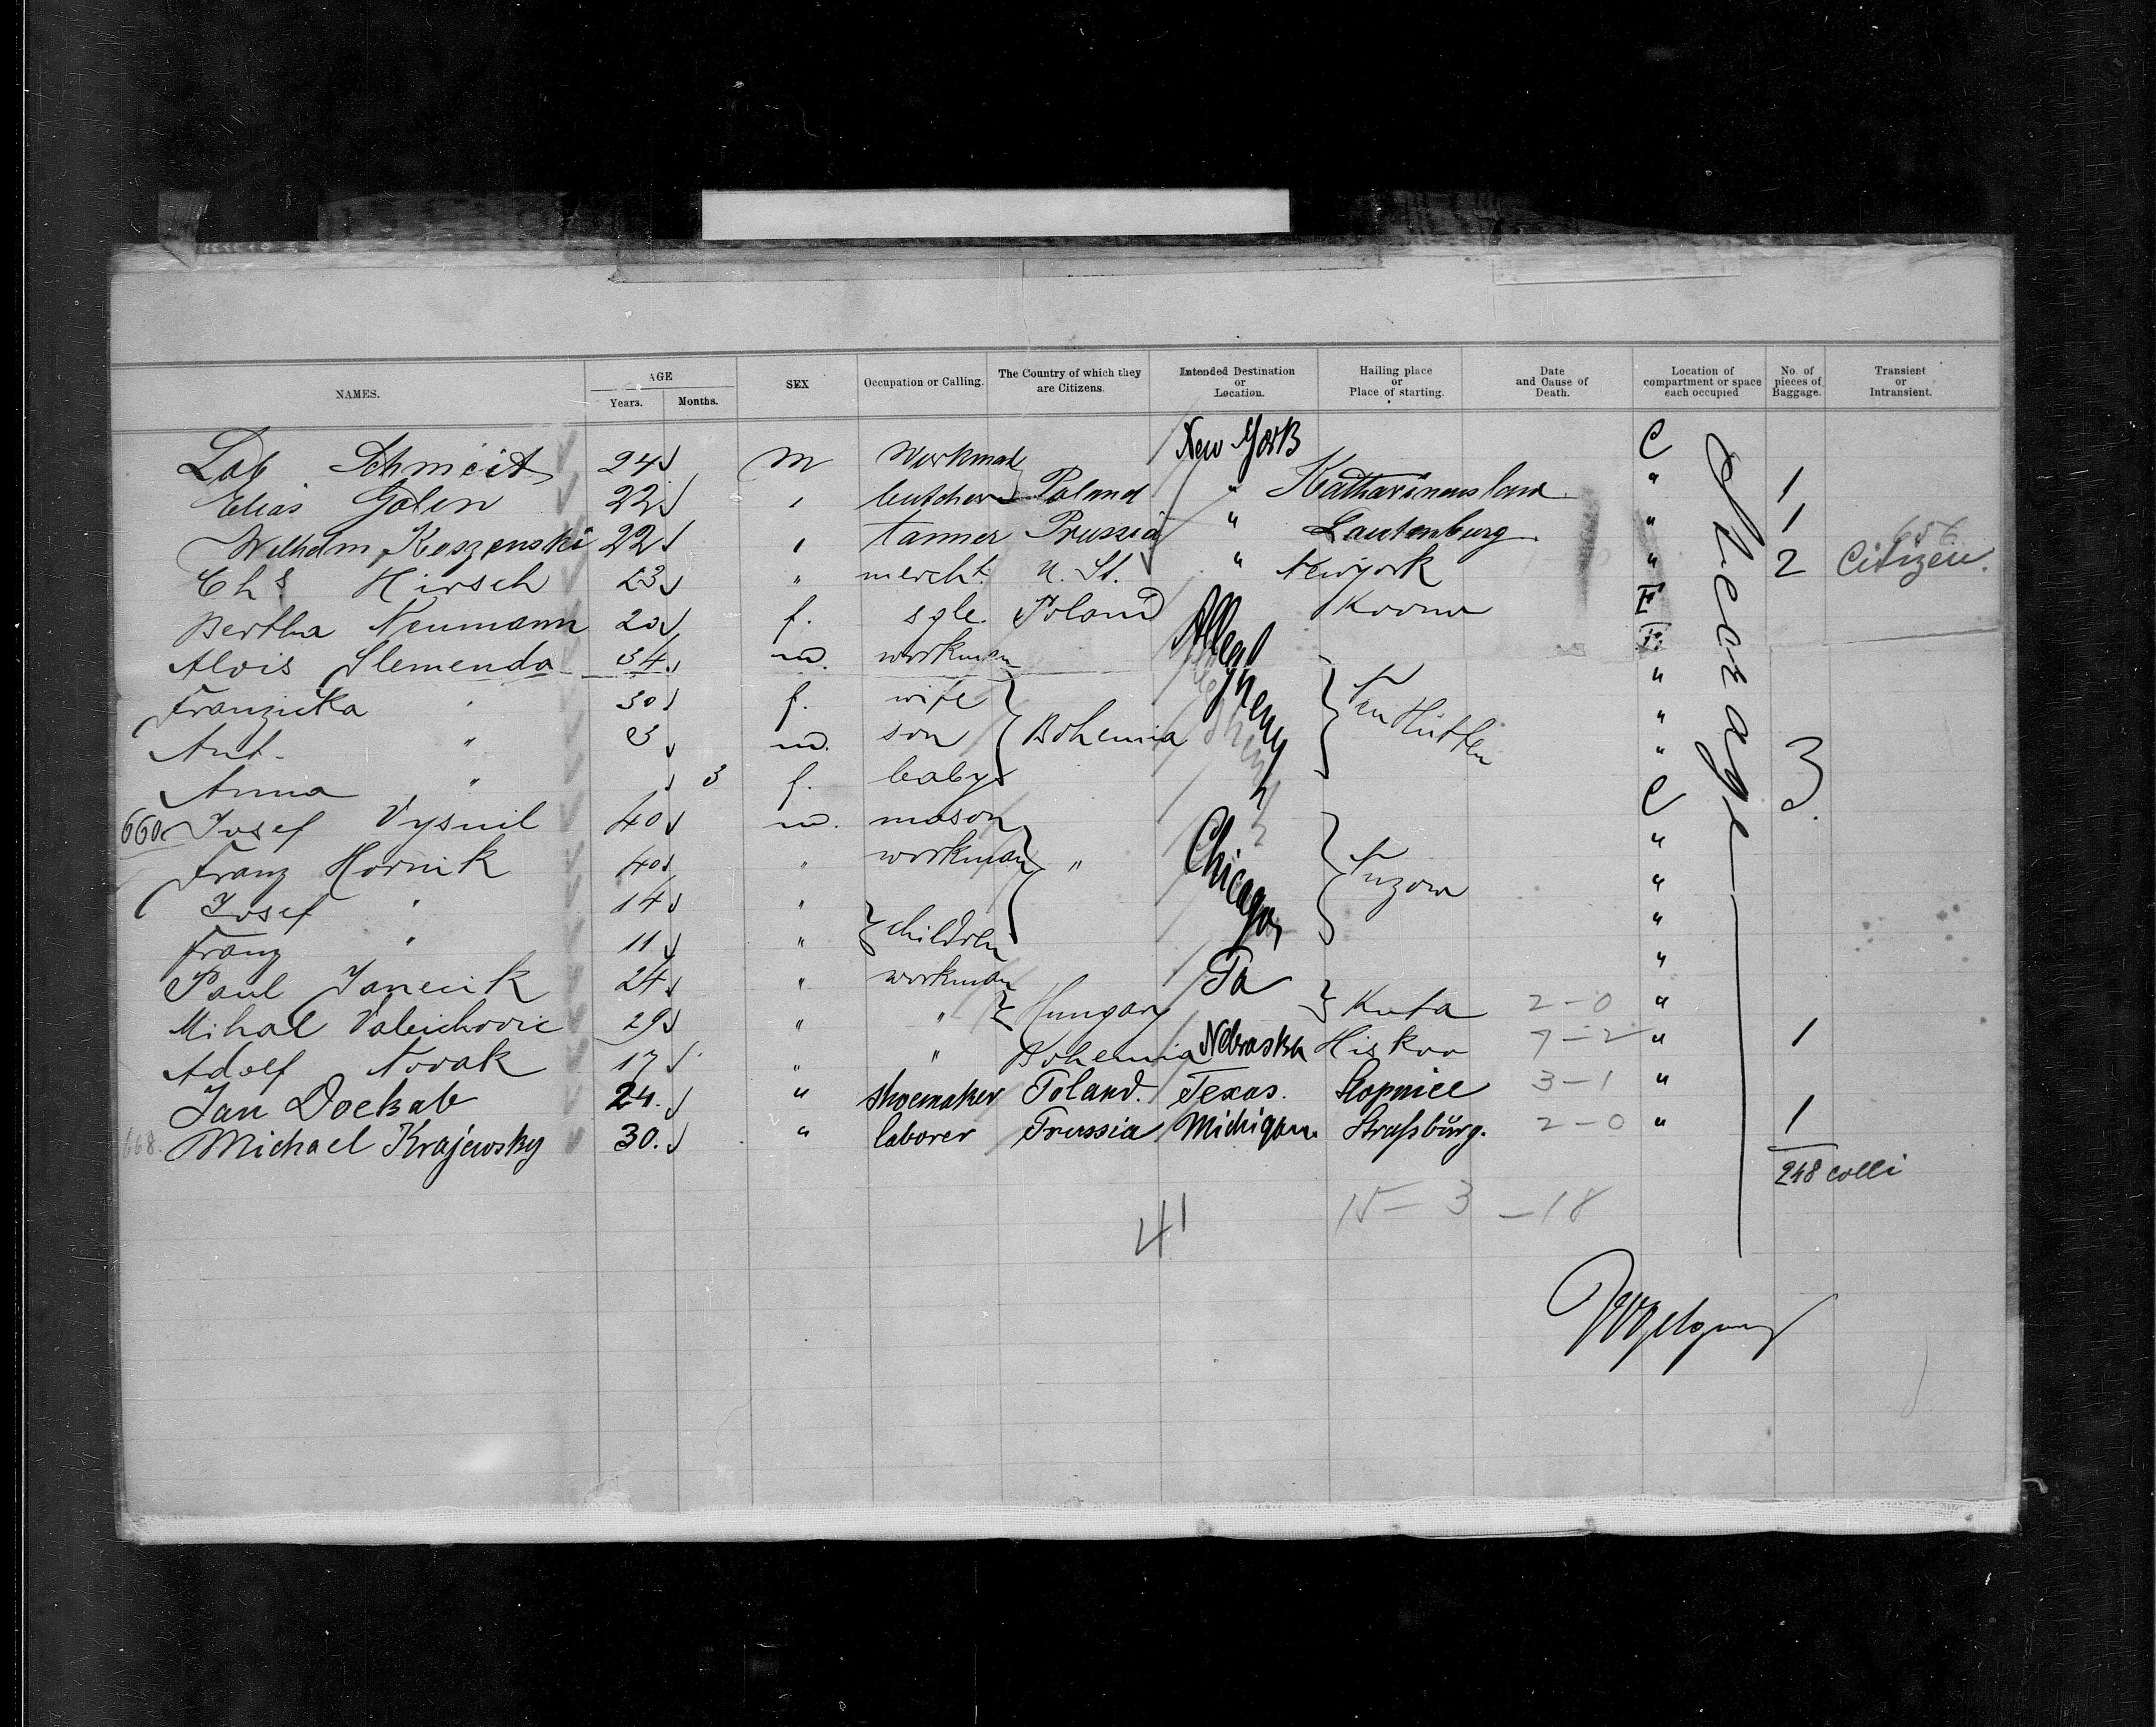 NAMES. AGE Years. Months. SEX Occupation or Calling. The Country of which they are Citizens. Intended Destination or Location. Hailing place or Place of starting. Date and Cause of Death. Location of compartment or space each occupied No. of pieces of Baggage. Transient or Intransient.
Schmeit 24 m Workman New York C
Elias Golen 22 " butcher Poland " Katharinensland " 1
Wilhelm Koszenski 22 " tanner Prussia " Lautenburg " 1
Chs Hirsch 23 " mercht. U. St. " Newyork " 2 Citizen.
Bertha Neumann 20 f. sgle. Poland Koono E
Alois Slemenda 34 m. workman Allegheny E
Franziska " 30 f. wife "
Ant. " 3 m. son Bohemia Neu Hütten "
Anna " 3 f. baby " 3.
660 Josef Vysnil 40 m. mason Chicago C
Franz Hornik 40 " workman " "
Josef " 14 " "
Franz " 11 " children "
Paul Janecik 24 " workman Pa "
Mihal 29 " " Hungary Kuta 2-0 "
Adolf Novak 17 " " Bohemia Nebraska Hiskoo 7-2 " 1
Jan Doekab 24. " shoemaker Poland. Texas. Slopnice 3-1 "
668. Michael Krajewsky 30. " laborer Prussia Michigan. Straßburg. 2-0 " 1
248 colli
41
15-3-18